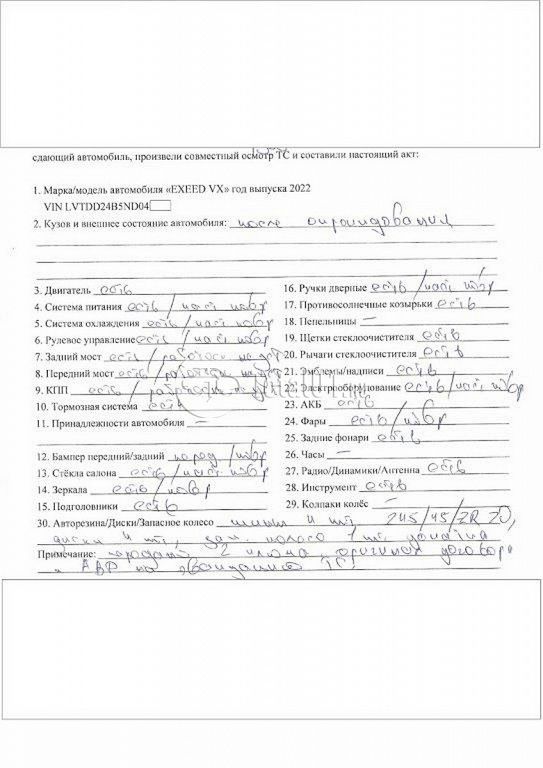 сдающий автомобиль, произвели совместный осмотр ТС и составили настоящий акт:
1. Марка/модель автомобиля «EXEED VX» год выпуска 2022
VIN LVTDD24B5ND04
2. Кузов и внешнее состояние автомобиля: после опрокидования
3. Двигатель есть
4. Система питания есть / част повр
5. Система охлаждения есть / част повр
6. Рулевое управление есть / част повр
7. Задний мост есть / работосп не уст
8. Передний мост есть / работосп не уст
9. КПП есть /
10. Тормозная система есть
11. Принадлежности автомобиля —
12. Бампер передний/задний /повр
13. Стёкла салона есть / част повр
14. Зеркала есть / повр
15. Подголовники есть
16. Ручки дверные есть / част повр
17. Противосолнечные козырьки есть
18. Пепельницы —
19. Щетки стеклоочистителя есть
20. Рычаги стеклоочистителя есть
21. Эмблемы/надписи есть
22. Электрооборудование есть/част повр
23. АКБ есть
24. Фары есть /повр
25. Задние фонари есть
26. Часы —
27. Радио/Динамики/Антенна есть
28. Инструмент есть
29. Колпаки колёс —
30. Авторезина/Диски/Запасное колесо шины 4 шт, 245/45/ZR 20,
диски 4 шт, зап. колесо 1 шт,
Примечание: 2 ключа, оригинал договора
и АВР на эвакуацию ТС.